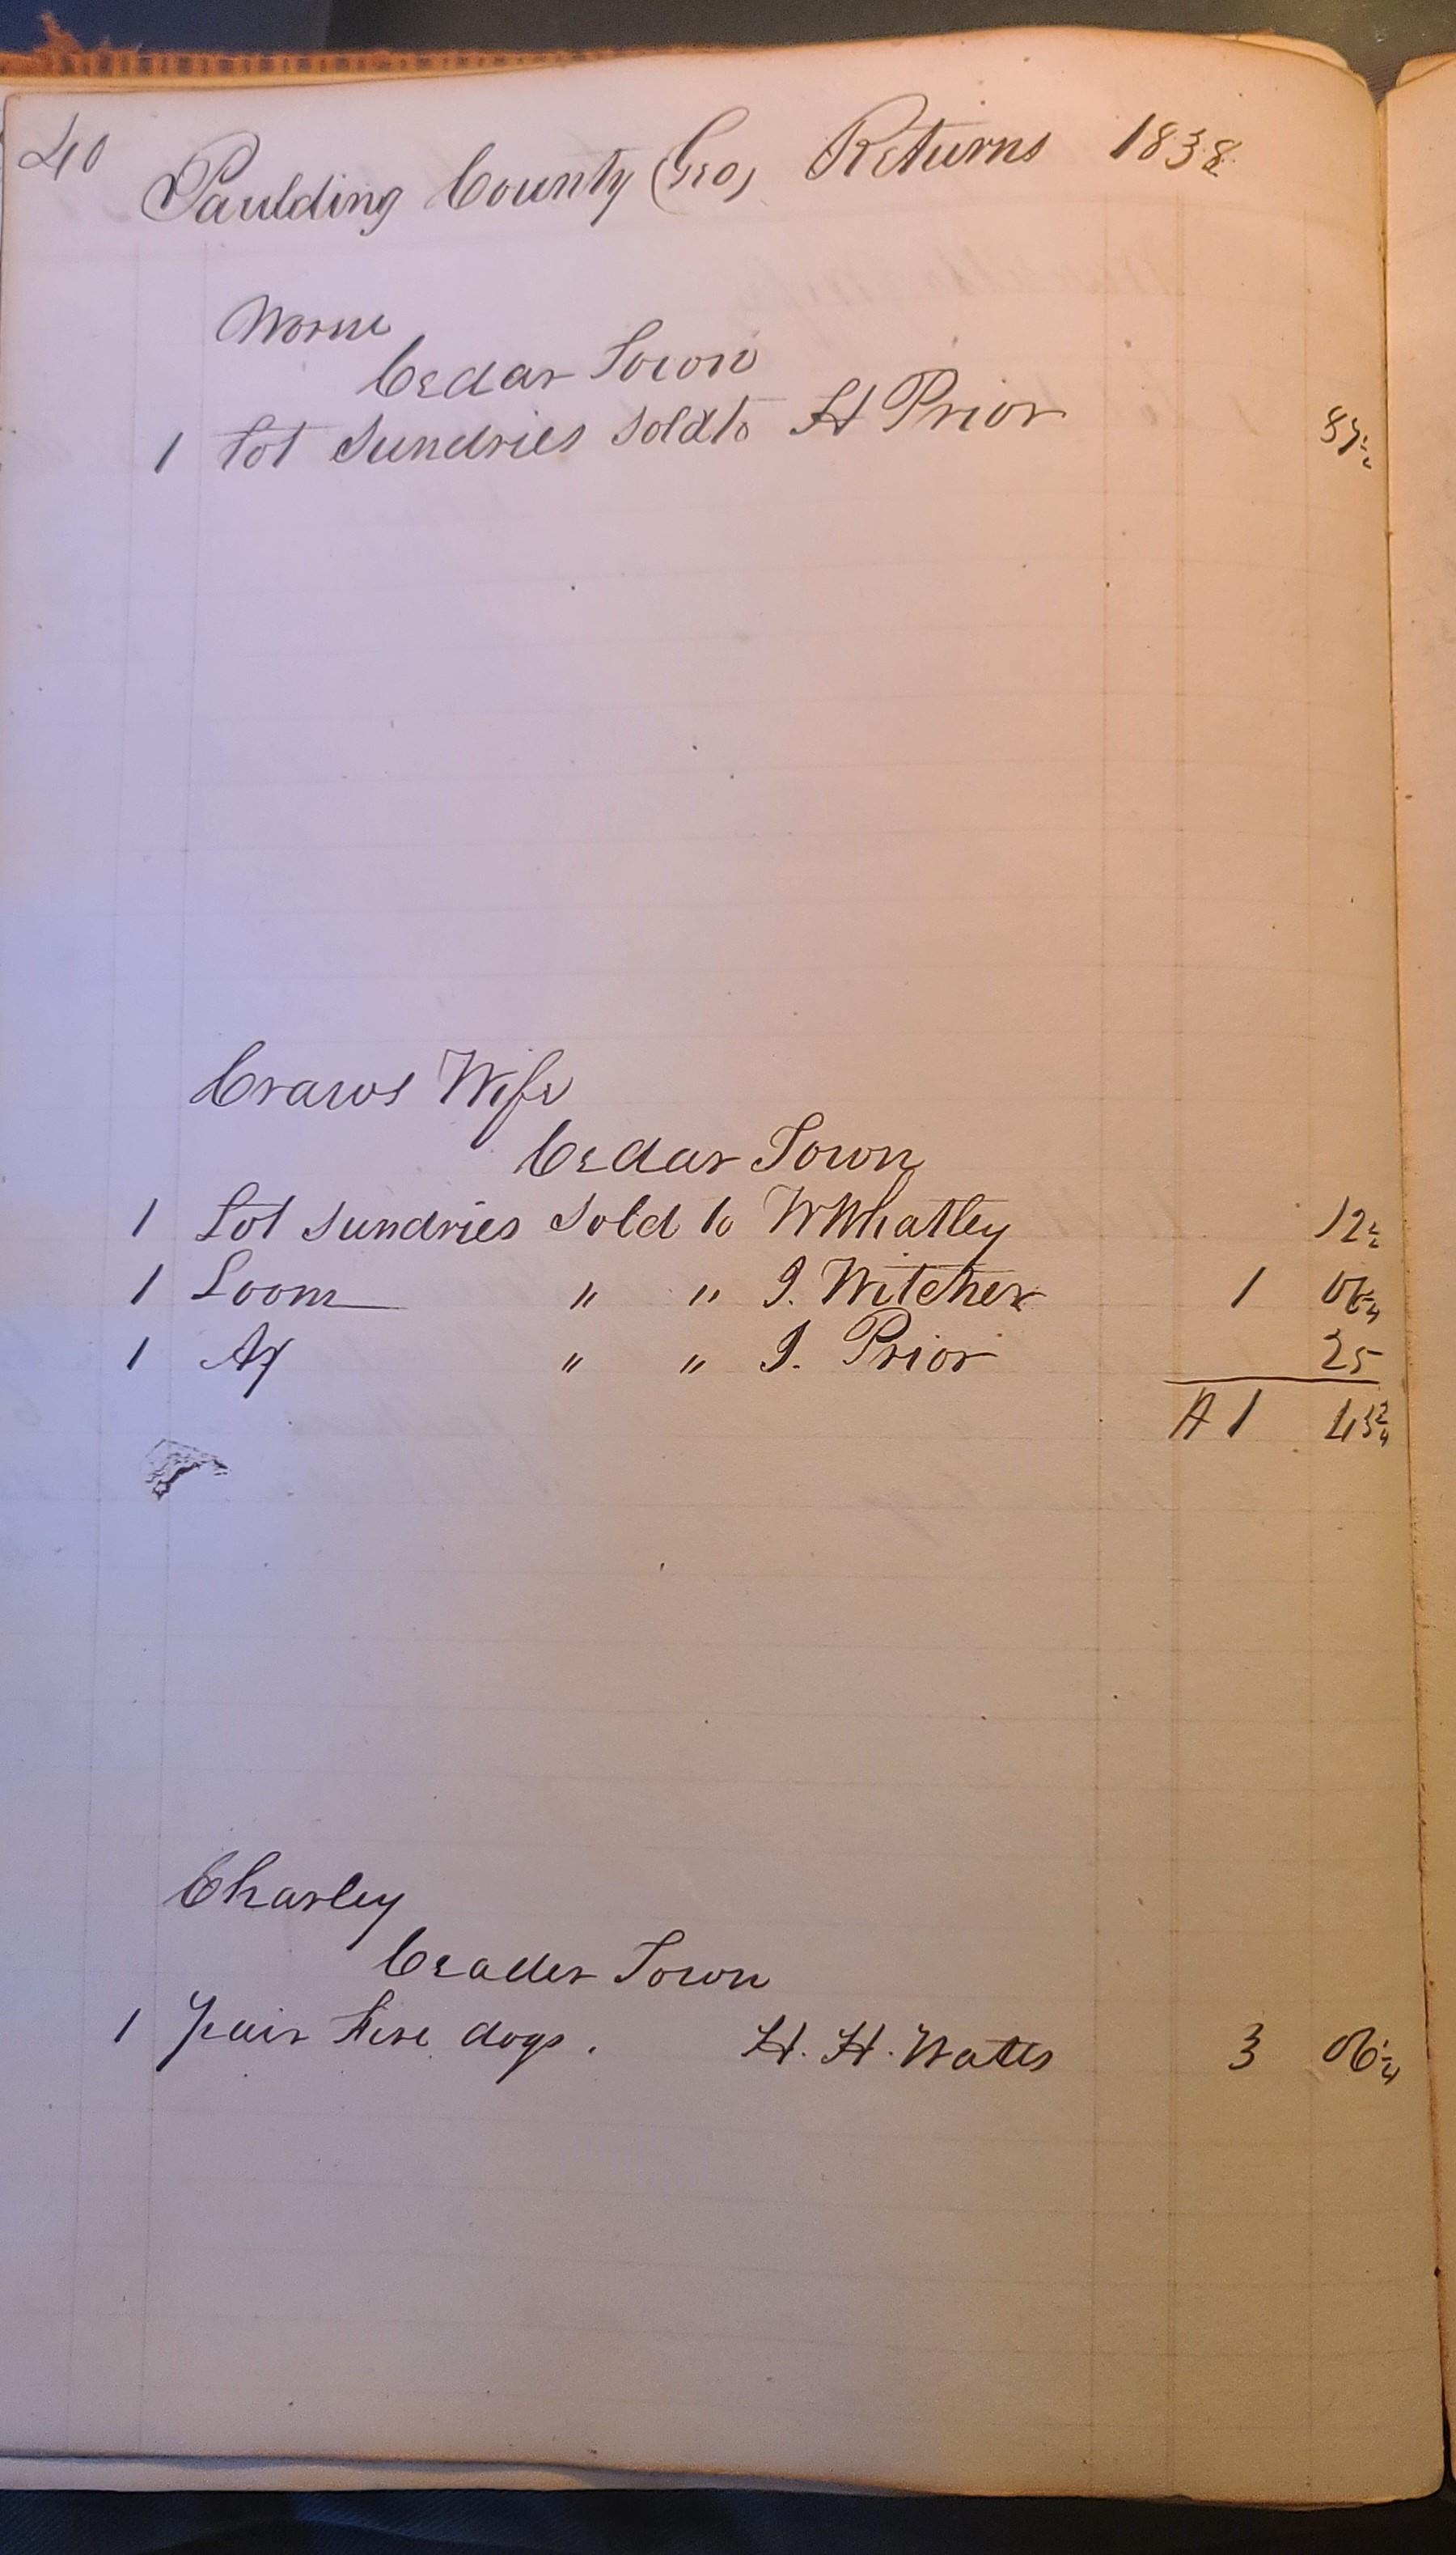 40
Paulding County (Geo) Returns 1838
Cedar Town
1 Lot Sundries Sold to H Prior
Craws Wife
Cedar Town
1 Lot Sundries Sold to W Whatley 12½
1 Loom " " J. Witcher 1 06¼
1 Ax " " J. Prior 25
A 1 43¾
Charley
Ceader Town
1 pair fire dogs. H. H. Watts 3 06¼